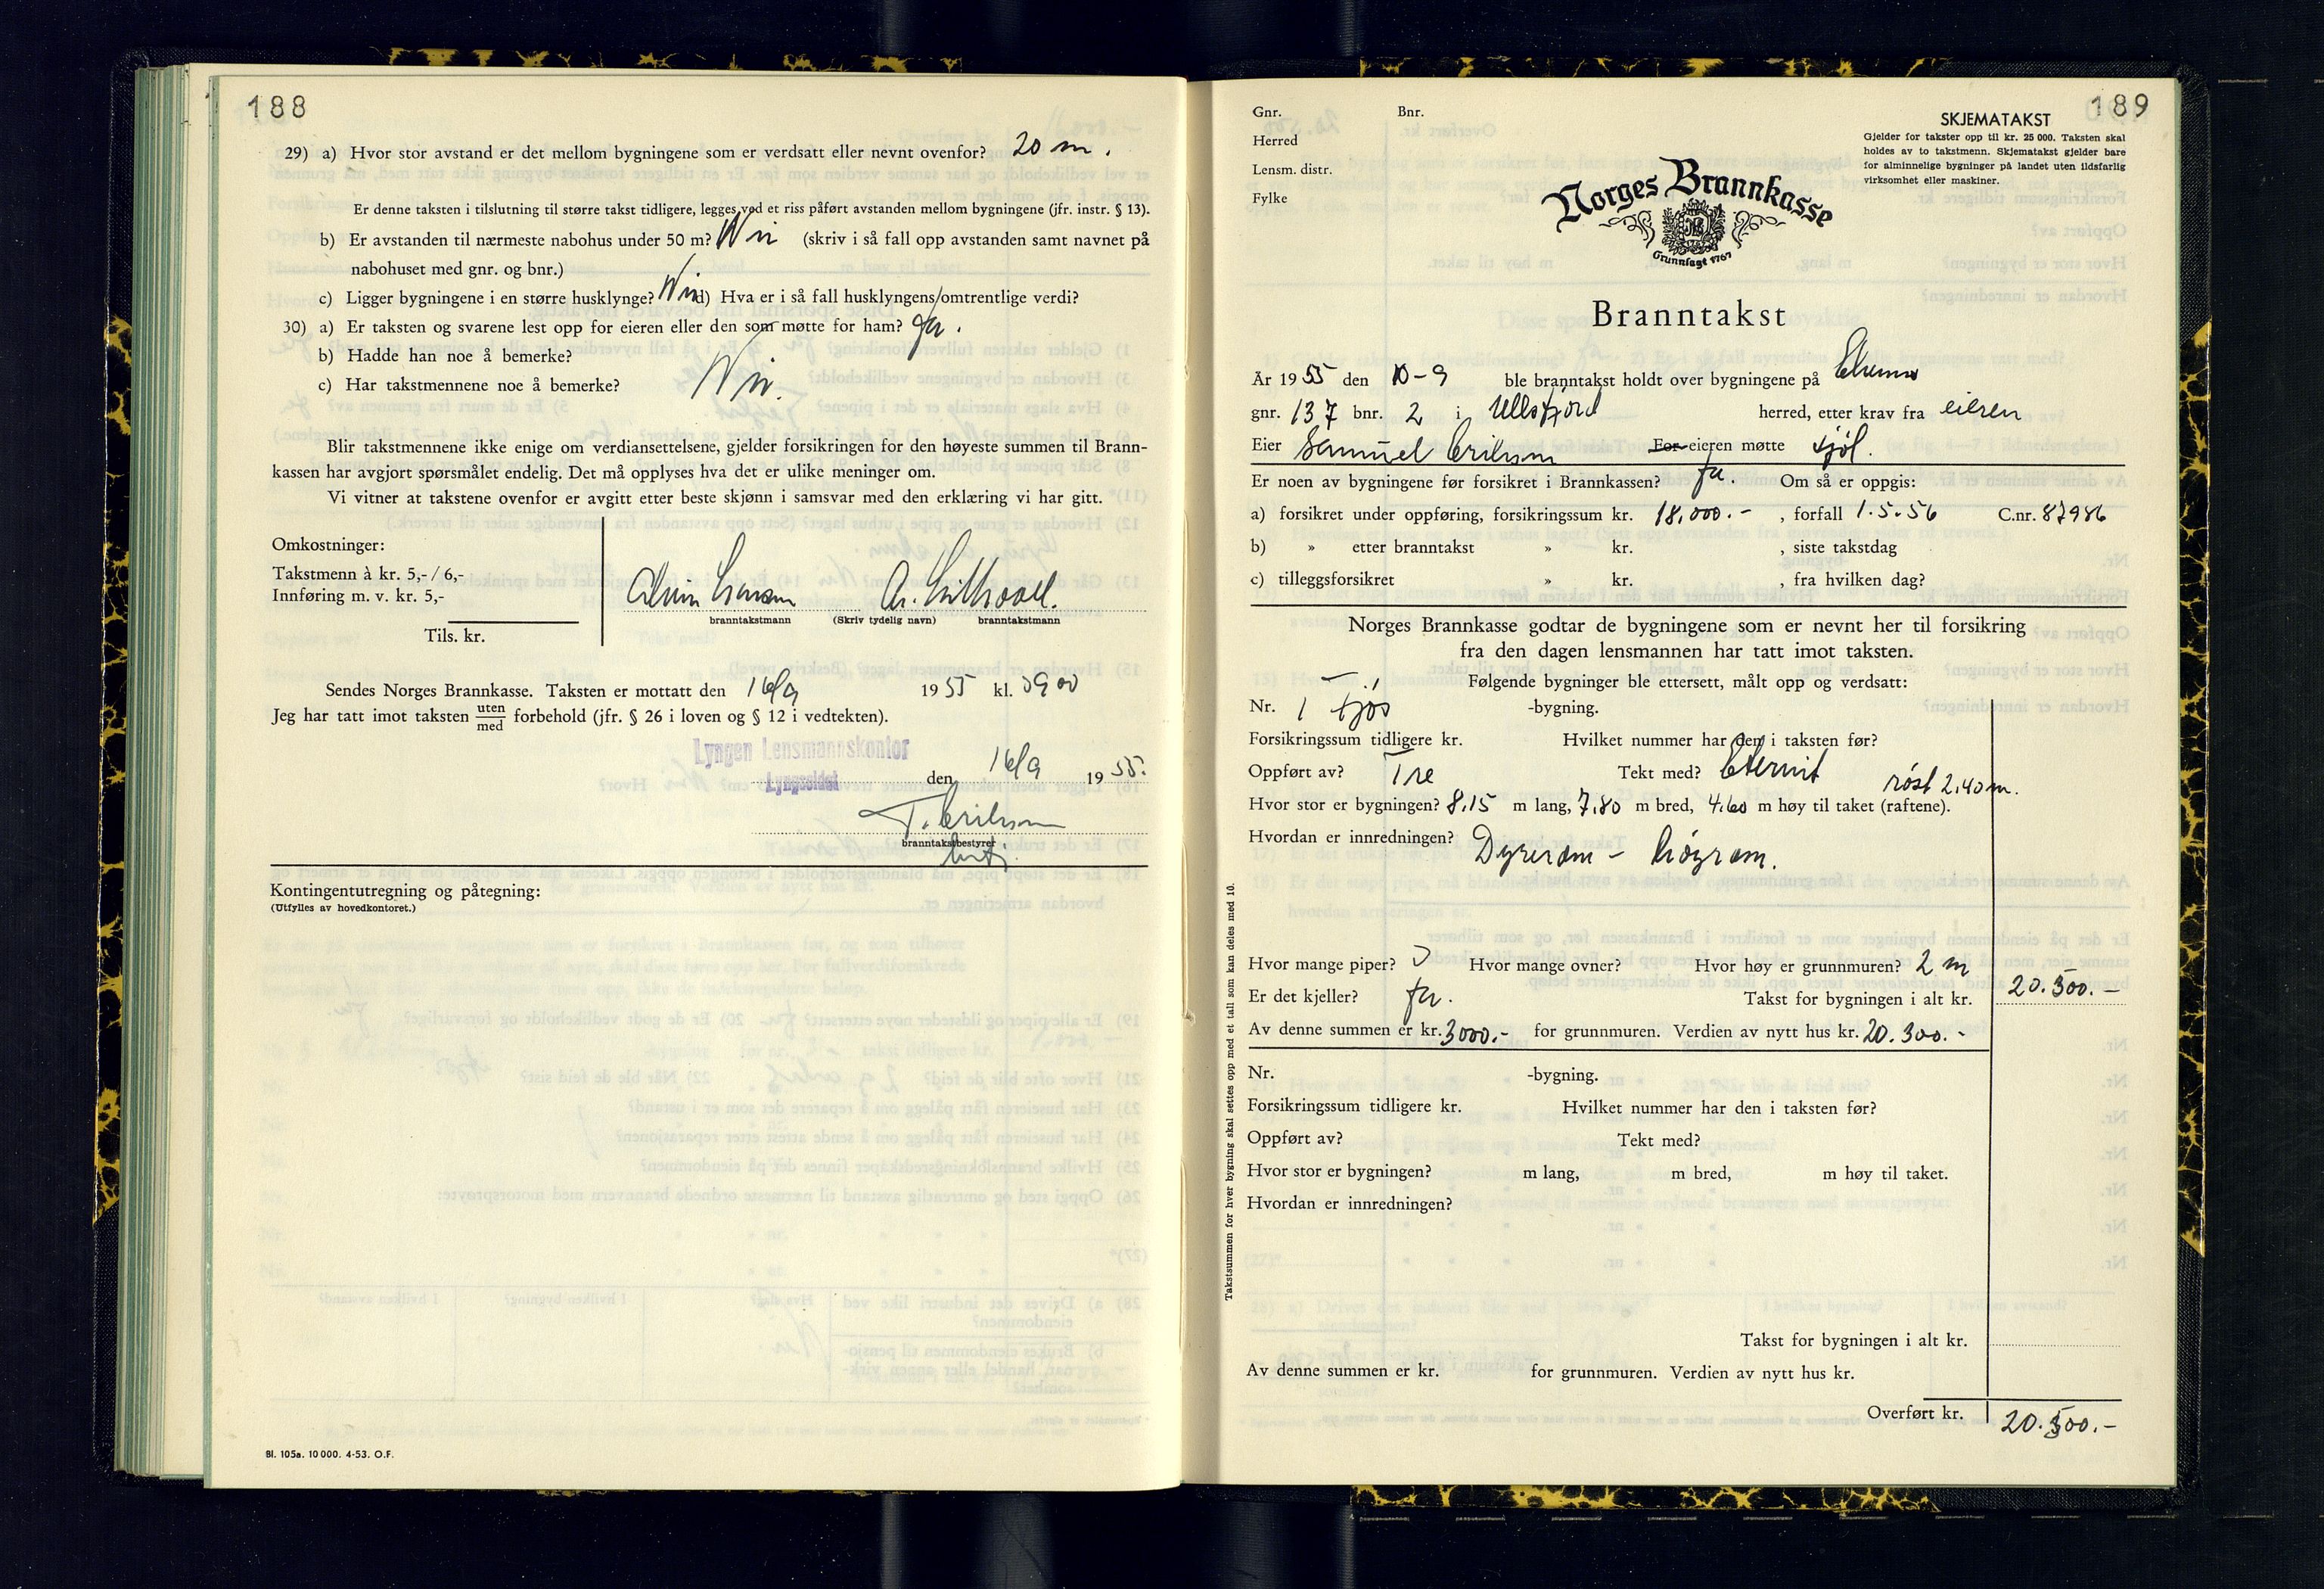 188
29) a) Hvor stor avstand er det mellom bygningene som er verdsatt eller nevnt ovenfor? 20 m.
Er denne taksten i tilslutning til større takst tidligere, legges ved et riss påført avstanden mellom bygningene (jfr. instr. § 13).
b) Er avstanden til nærmeste nabohus under 50 m? Nei (skriv i så fall opp avstanden samt navnet på
nabohuset med gnr. og bnr.)
c) Ligger bygningene i en større husklynge? Nei d) Hva er i så fall husklyngens omtrentlige verdi?
30) a) Er taksten og svarene lest opp for eieren eller den som møtte for ham? Ja.
b) Hadde han noe å bemerke?
c) Har takstmennene noe å bemerke? Nei.
Blir takstmennene ikke enige om verdiansettelsene, gjelder forsikringen for den høyeste summen til Brann-
kassen har avgjort spørsmålet endelig. Det må opplyses hva det er ulike meninger om.
Vi vitner at takstene ovenfor er avgitt etter beste skjønn i samsvar med den erklæring vi har gitt.
Omkostninger:
Takstmenn à kr. 5,-/6,-
Innføring m. v. kr. 5,-
Tils. kr.
branntakstmann (Skriv tydelig navn) branntakstmann
Sendes Norges Brannkasse. Taksten er mottatt den 16/9 1955 kl. 0900
Jeg har tatt imot taksten uten/med forbehold (jfr. § 26 i loven og § 12 i vedtekten).
Lyngen Lensmannskontor
Lyngseidet den 16/9 1955.
T. Eriksen
branntakstbestyrer
Kontingentutregning og påtegning:
(Utfylles av hovedkontoret.)
Bl. 105a. 10 000. 4-53. O.F.
189
Gnr. Bnr.
Herred
Lensm. distr.
Fylke
SKJEMATAKST
Gjelder for takster opp til kr. 25 000. Taksten skal
holdes av to takstmenn. Skjematakst gjelder bare
for alminnelige bygninger på landet uten ildsfarlig
virksomhet eller maskiner.
Norges Brannkasse
Grunnlagt 1767
Branntakst
År 1955 den 10-9 ble branntakst holdt over bygningene på
gnr. 137 bnr. 2 i Ullsfjord herred, etter krav fra eieren
Eier Samuel Eriksen For eieren møtte sjøl.
Er noen av bygningene før forsikret i Brannkassen? Ja. Om så er oppgis:
a) forsikret under oppføring, forsikringssum kr. 18,000.- , forfall 1.5.56 C.nr. 87986
b) » etter branntakst » kr. , siste takstdag
c) tilleggsforsikret » kr. , fra hvilken dag?
Norges Brannkasse godtar de bygningene som er nevnt her til forsikring
fra den dagen lensmannen har tatt imot taksten.
Følgende bygninger ble ettersett, målt opp og verdsatt:
Nr. 1 Fjøs -bygning.
Forsikringssum tidligere kr. Hvilket nummer har den i taksten før?
Oppført av? Tre Tekt med? Eternit røst 2,40 m.
Hvor stor er bygningen? 8.15 m lang, 7.80 m bred, 4.60 m høy til taket (raftene).
Hvordan er innredningen? Dyrerom - høyrom.
Hvor mange piper? Hvor mange ovner? Hvor høy er grunnmuren? 2 m
Er det kjeller? Ja. Takst for bygningen i alt kr. 20.300.-
Av denne summen er kr. 3000.- for grunnmuren. Verdien av nytt hus kr. 20.300.-
Nr. -bygning.
Forsikringssum tidligere kr. Hvilket nummer har den i taksten før?
Oppført av? Tekt med?
Hvor stor er bygningen? m lang, m bred, m høy til taket.
Hvordan er innredningen?
Takst for bygningen i alt kr.
Av denne summen er kr. for grunnmuren. Verdien av nytt hus kr.
Overført kr. 20.300.-
Takstsummen for hver bygning skal settes opp med et tall som kan deles med 10.